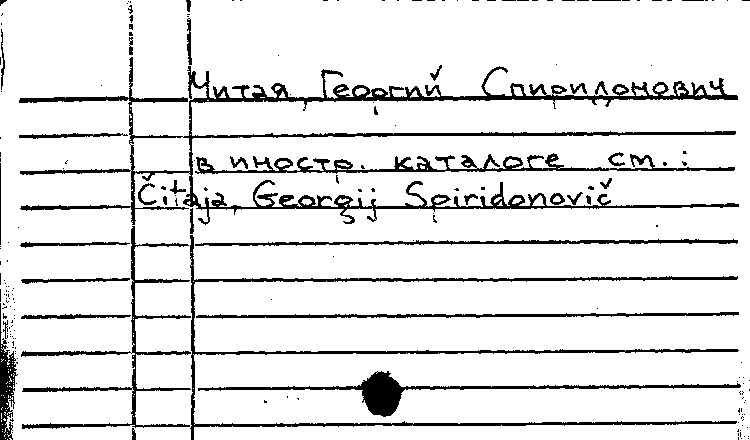 Читая, Георгий Спиридонович
в иностр. каталоге см.:
Čitaja, Georgij Spiridonovič